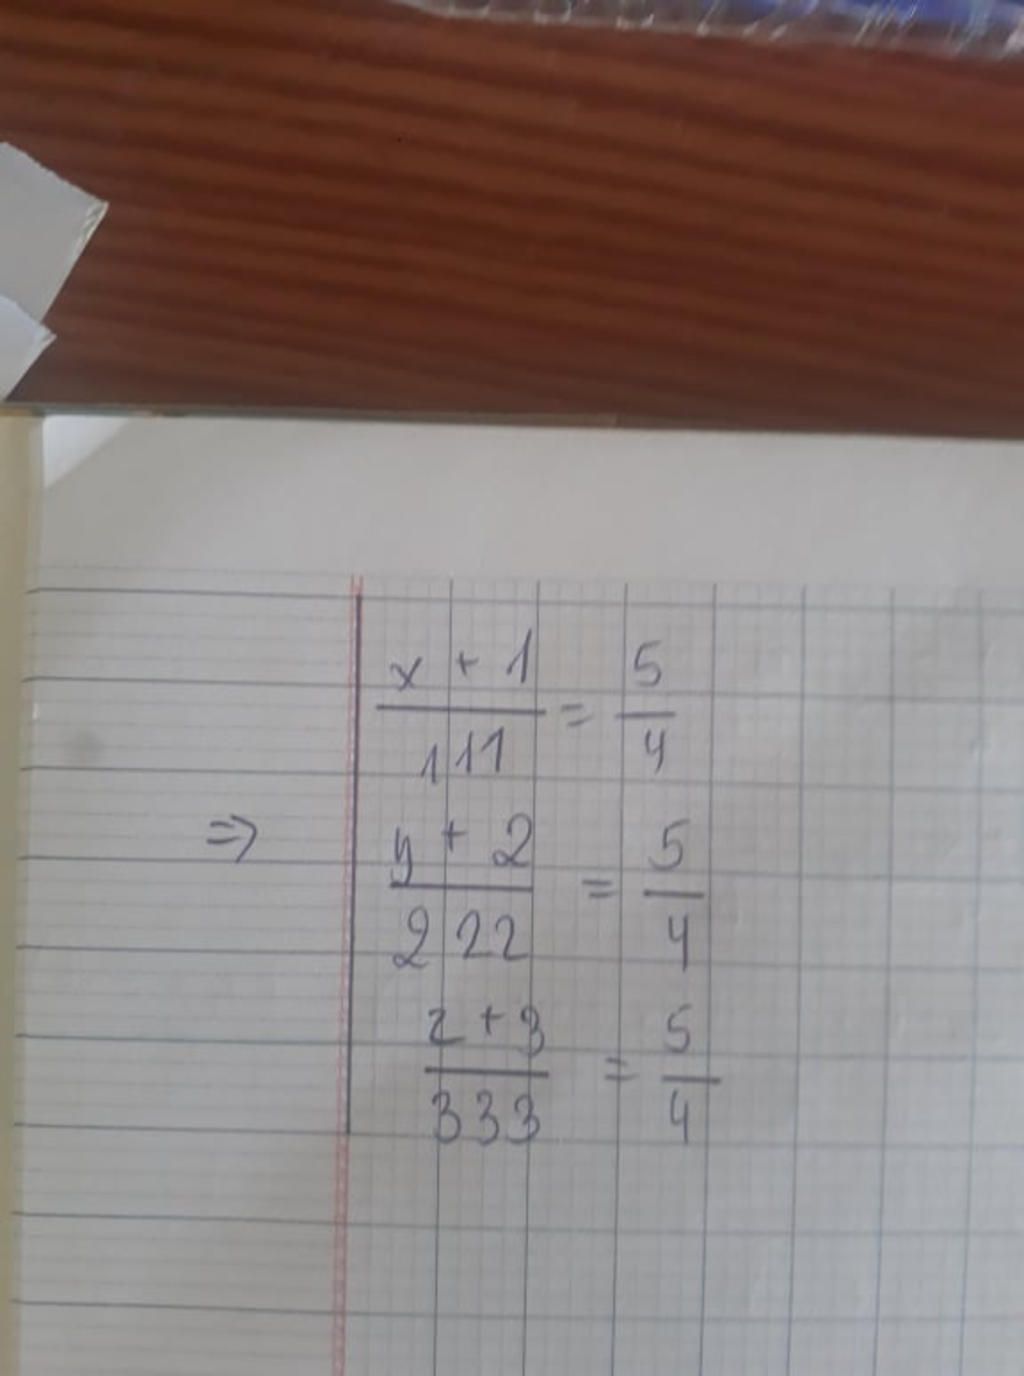 x + 1 / 111 = 5/4
=> y + 2 / 222 = 5/4
z + 3 / 333 = 5/4